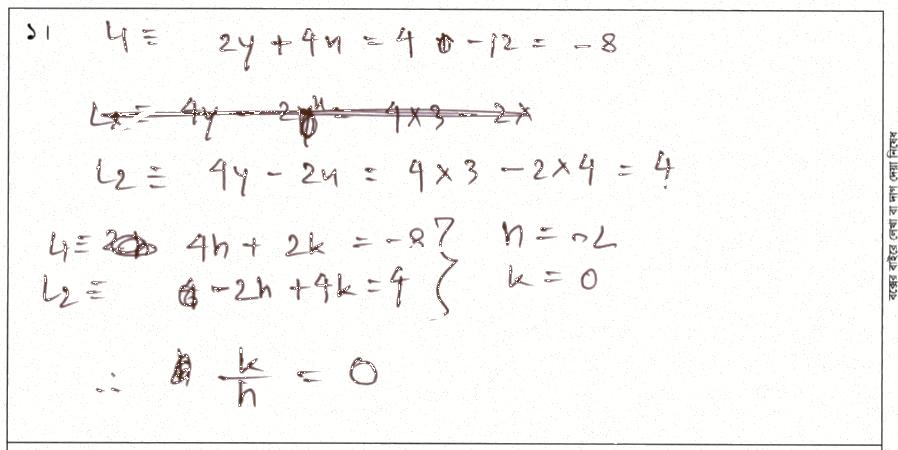 ১। L1 ≡ 2y + 4x = 4 - 12 = - 8
L2 ≡ 4y - 2x = 4×3 - 2×4 = 4
L1 ≡ 4h + 2k = -8 } h = -2
L2 ≡ -2h + 4k = 4 } k = 0
∴ k/h = 0
বক্সের বাইরে লেখা বা দাগ দেয়া নিষেধ